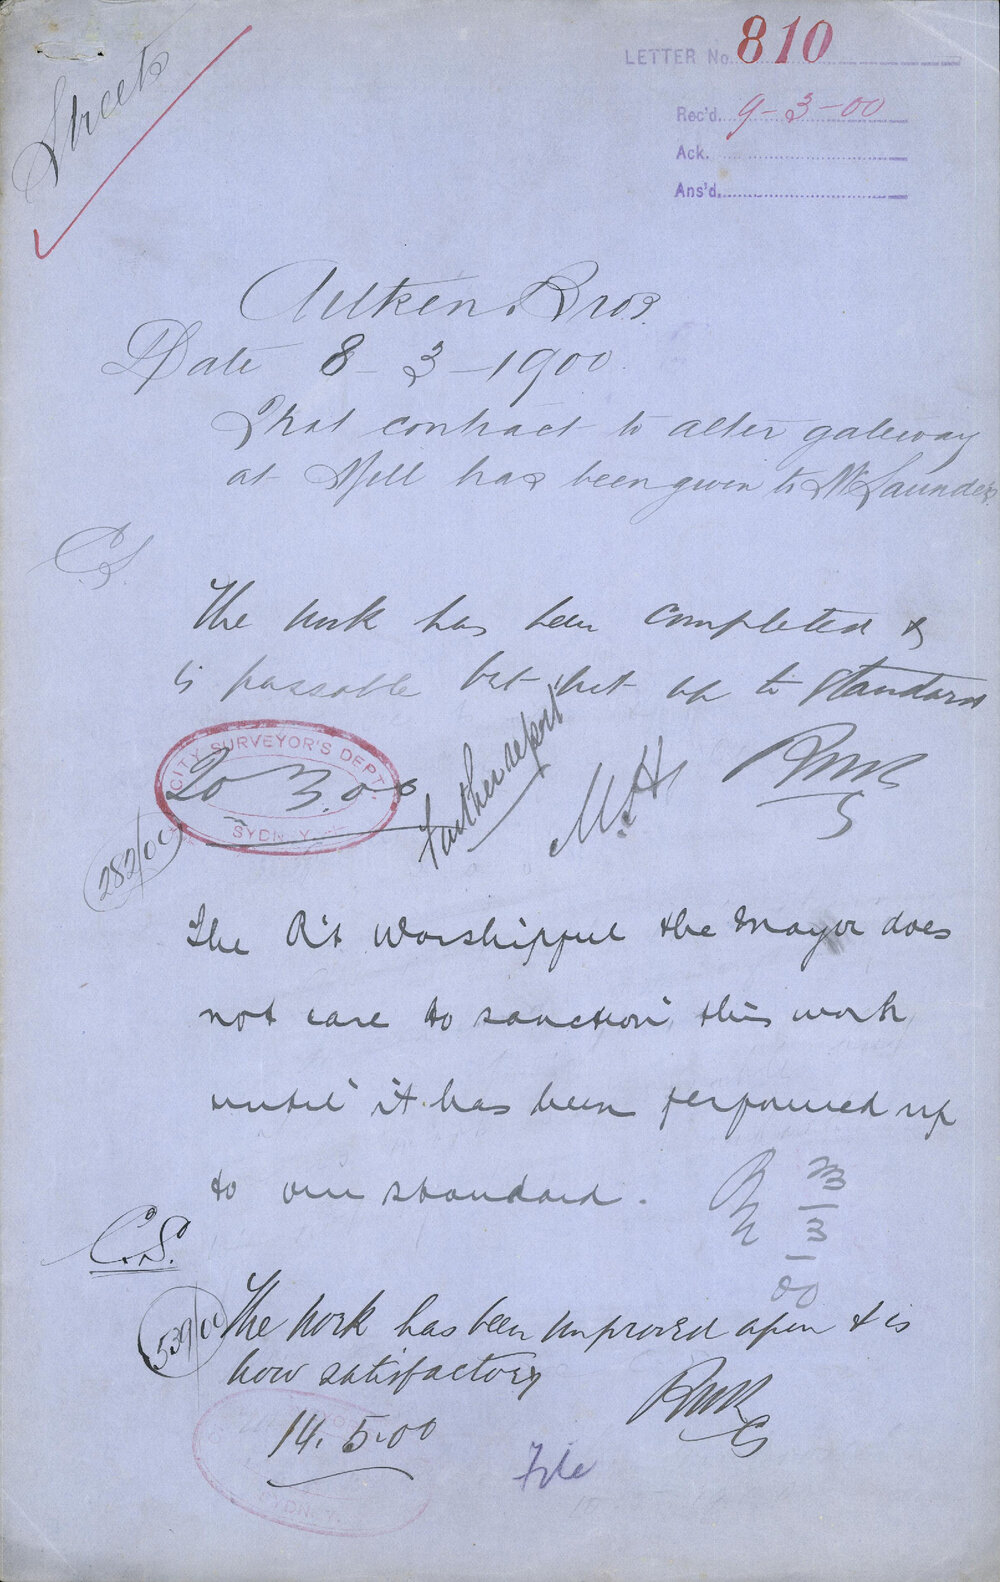 Streets
LETTER No. 810
Rec'd. 9-3-00
Ack.
Ans'd.
Aitken Bros.
Date 8-3-1900
That contract to alter gateway
at Mill has been given to W Saunders
C.S.
The work has been completed &
is passable but not up to standard
CITY SURVEYOR'S DEPT.
20.3.00
SYDNEY
Further report
M.H
RMR
282/00
The Rt Worshipful the Mayor does
not care to sanction this work
until it has been performed up
to our standard.
23
3
00
C.S.
539/00
The work has been improved upon & is
now satisfactory
14.5.00
RMR
SYDNEY
File